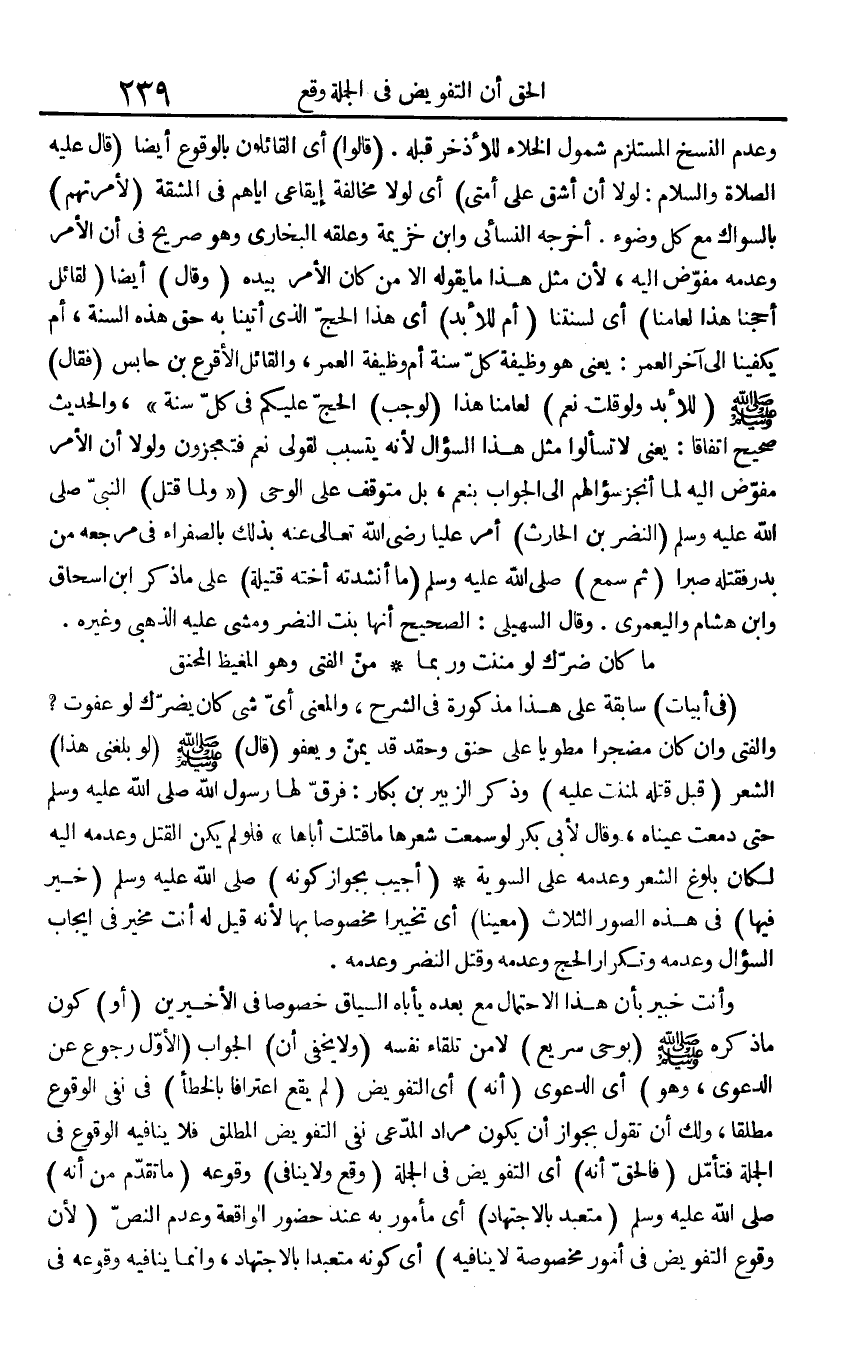 الحق أن التفويض فى الجملة وقع ٢٣٩
وعدم النسخ المستلزم شمول الخلاء للأذخر قبله . (قالوا) أى القائلون بالوقوع أيضا (قال عليه
الصلاة والسلام : لولا أن أشق على أمتى) أى لولا مخالفة إيقاعى اياهم فى المشقة (لأمرتهم)
بالسواك مع كل وضوء . أخرجه النسائى وابن خزيمة وعلقه البخارى وهو صريح فى أن الأمر
وعدمه مفوّض اليه ، لأن مثل هذا مايقوله الا من كان الأمر بيده (وقال) أيضا (لقائل
أحجنا هذا لعامنا) أى لسنتنا (أم للأبد) أى هذا الحجّ الذى أتينا به حق هذه السنة ، أم
يكفينا الى آخر العمر : يعنى هو وظيفة كلّ سنة أم وظيفة العمر ، والقائل الأقرع بن حابس (فقال)
ﷺ (للأبد ولوقلت نعم) لعامنا هذا (لوجب) الحجّ عليكم فى كلّ سنة » ، والحديث
صحيح اتفاقا : يعنى لاتسألوا مثل هذا السؤال لأنه يتسبب لقولى نعم فتعجزون ولولا أن الأمر
مفوّض اليه لما أنجز سؤالهم الى الجواب بنعم ، بل متوقف على الوحى (« ولما قتل) النبىّ صلى
الله عليه وسلم (النضر بن الحارث) أمر عليا رضى الله تعالى عنه بذلك بالصفراء فى مرجعه من
بدر فقتله صبرا (ثم سمع) صلى الله عليه وسلم (ما أنشدته أخته قتيلة) على ماذكر ابن اسحاق
وابن هشام واليعمرى . وقال السهيلى : الصحيح أنها بنت النضر ومشى عليه الذهبى وغيره .
ما كان ضرّك لو مننت وربما * منّ الفتى وهو المغيظ المحنق
(فى أبيات) سابقة على هذا مذكورة فى الشرح ، والمعنى أىّ شى كان يضرّك لو عفوت ؟
والفتى وان كان مضجرا مطويا على حنق وحقد قد يمنّ ويعفو (قال) ﷺ (لو بلغنى هذا)
الشعر (قبل قتله لمننت عليه) وذكر الزبير بن بكار : فرقّ لها رسول الله صلى الله عليه وسلم
حتى دمعت عيناه ، وقال لأبى بكر لوسمعت شعرها ماقتلت أباها » فلو لم يكن القتل وعدمه اليه
لكان بلوغ الشعر وعدمه على السوية * (أجيب بجواز كونه) صلى الله عليه وسلم (خير
فيها) فى هذه الصور الثلاث (معينا) أى تخييرا مخصوصا بها لأنه قيل له أنت مخير فى ايجاب
السؤال وعدمه وتكرار الحج وعدمه وقتل النضر وعدمه .
وأنت خبير بأن هذا الاحتمال مع بعده يأباه السياق خصوصا فى الأخيرين (أو) كون
ماذكره ﷺ (بوحى سريع) لامن تلقاء نفسه (ولايخفى أن) الجواب (الأوّل رجوع عن
الدعوى ، وهو) أى الدعوى (أنه) أى التفويض (لم يقع اعترافا بالخطأ) فى نفى الوقوع
مطلقا ، ولك أن تقول بجواز أن يكون مراد المدّعى نفى التفويض المطلق فلا ينافيه الوقوع فى
الجلة فتأمّل (فالحقّ أنه) أى التفويض فى الجلة (وقع ولاينافى) وقوعه (ماتقدّم من أنه)
صلى الله عليه وسلم (متعبد بالاجتهاد) أى مأمور به عند حضور الواقعة وعدم النصّ (لأن
وقوع التفويض فى أمور مخصوصة لاينافيه) أى كونه متعبدا بالاجتهاد ، وانما ينافيه وقوعه فى